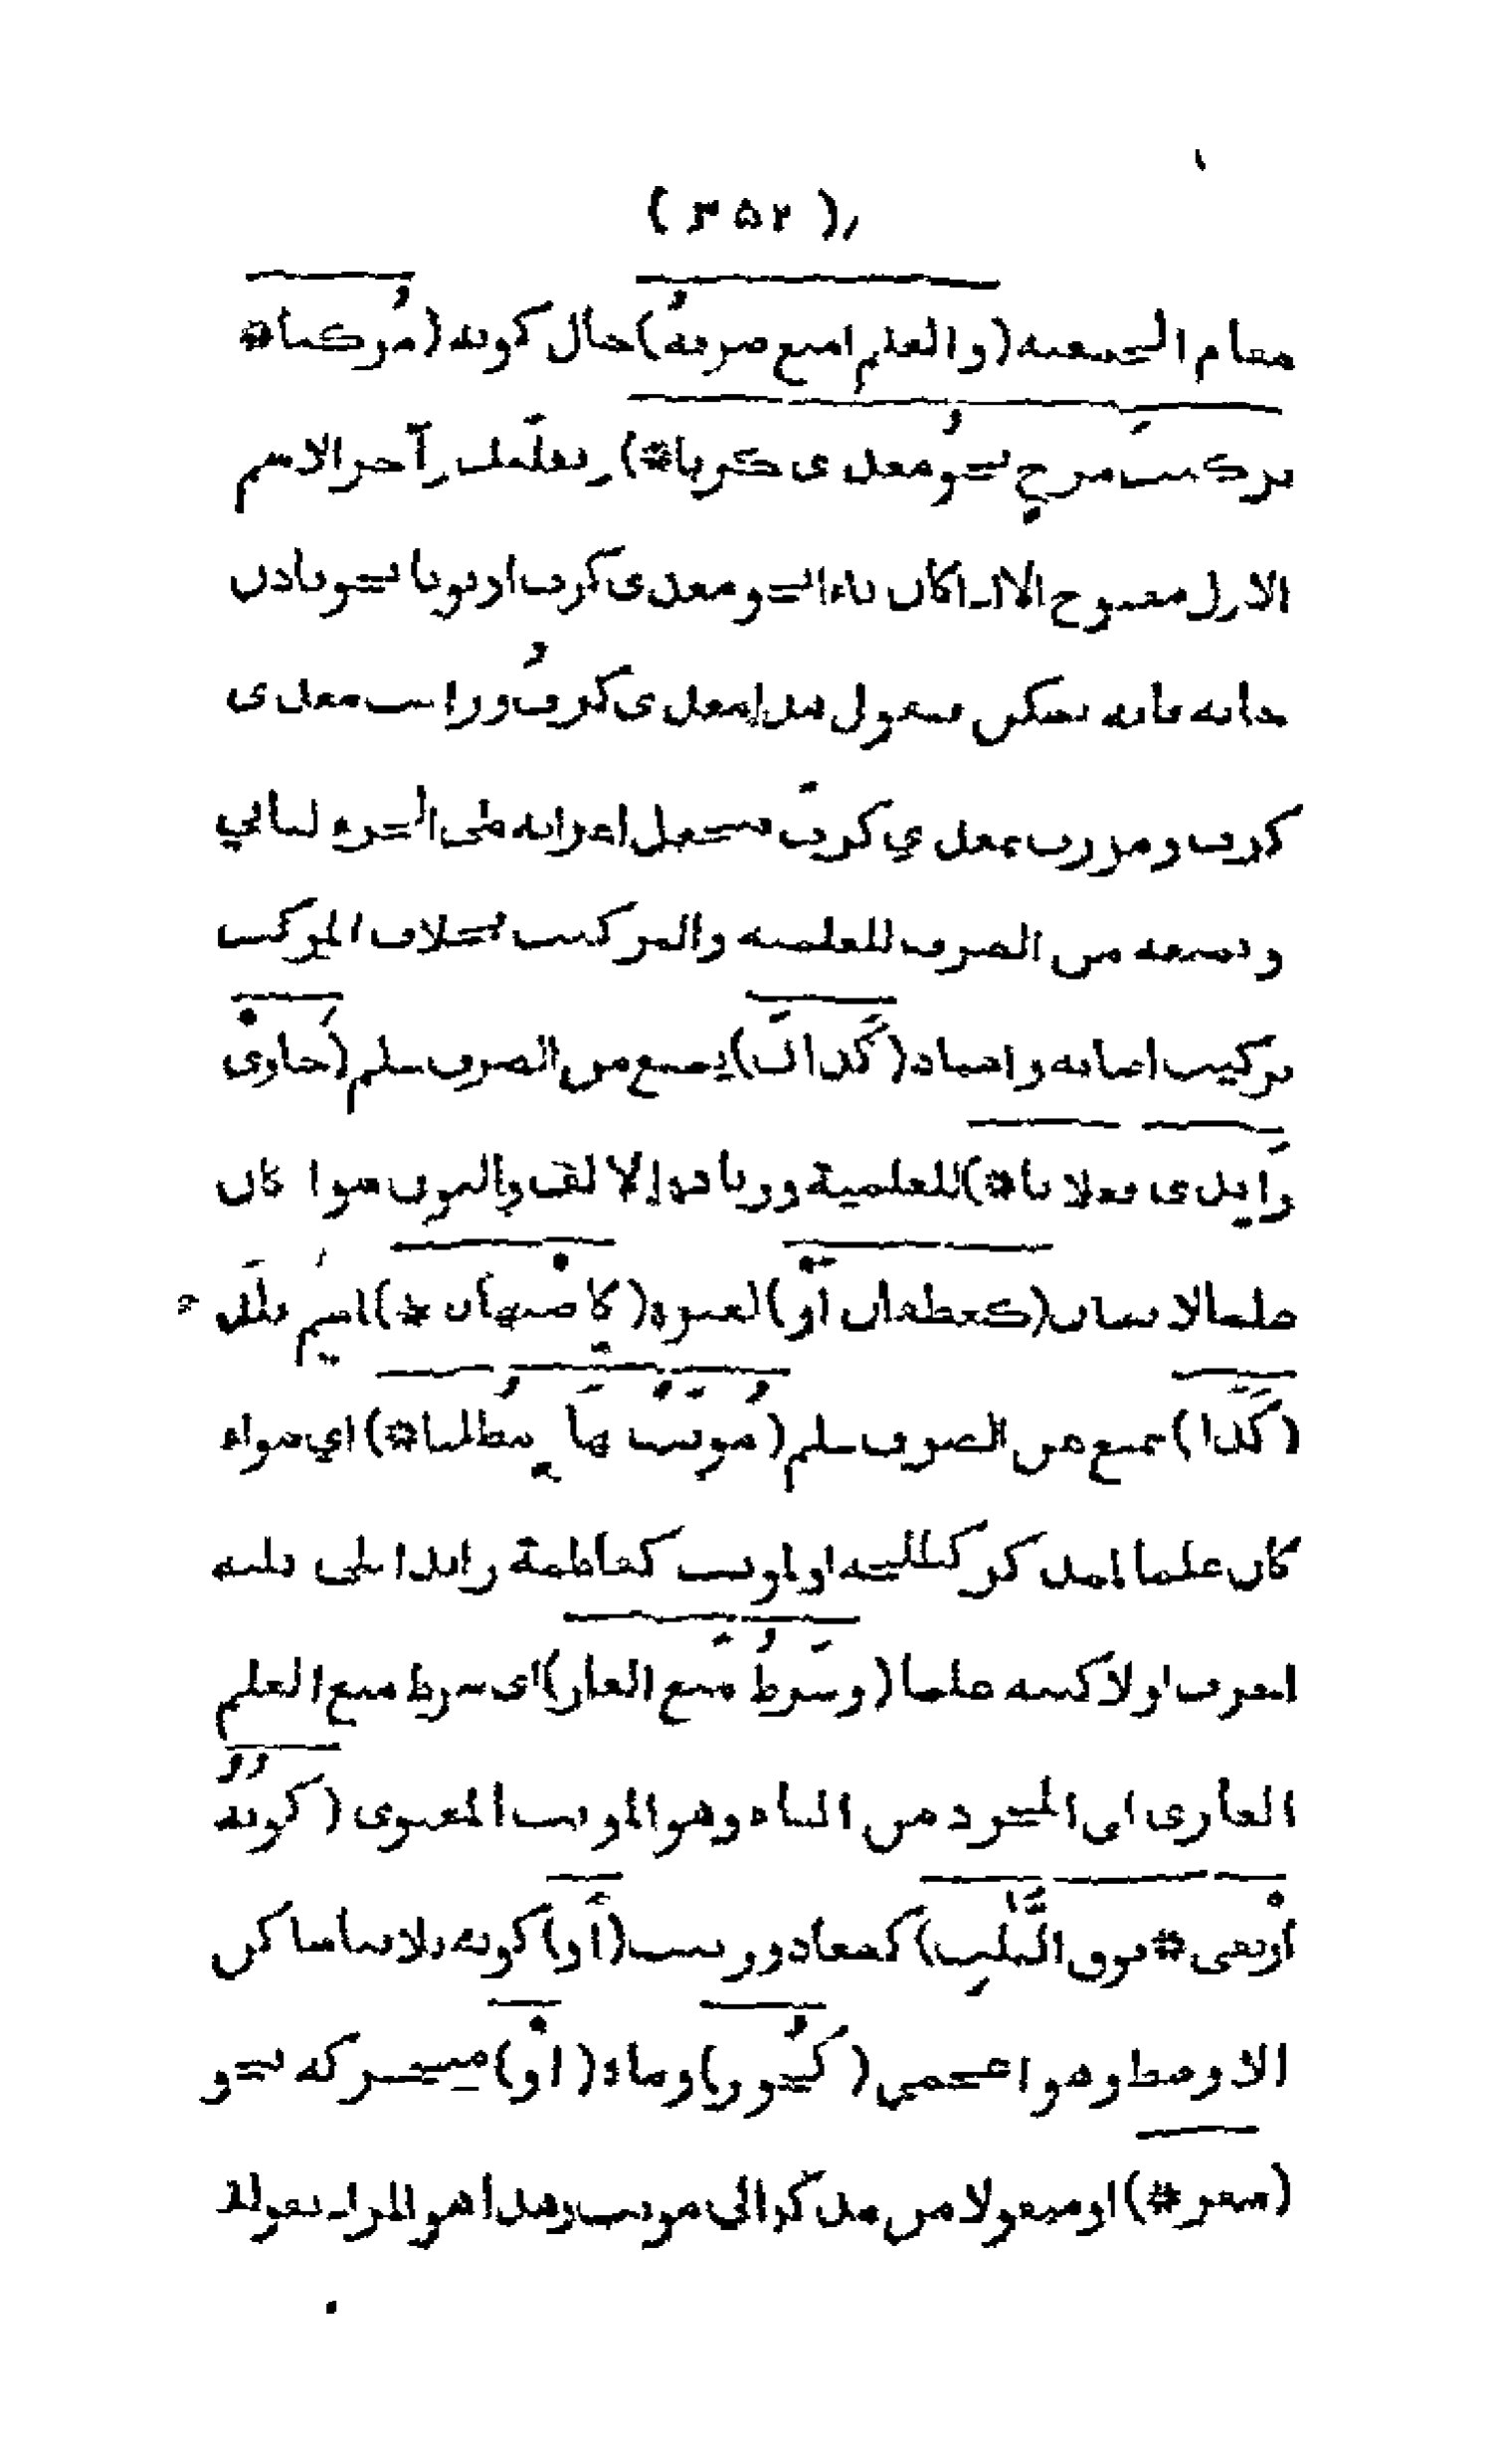 ( ٣٥٢ )
مقام الجمعية (والعلم امنع صرفهُ) حال كونه (مُركبا *
تركيبَ مزجٍ نحوُ معدي كربا *) وبعلَبك وآخر الاسم
الاول مفتوح الا اذا كان ياءا نحو معدي كرب او نونا نحو باذن
جانه فانه يسكن فتقول هذا معدي كربُ ورايت معدي
كرب ومررت بمعدي كربَ فتجعل اعرابه على الجزء الثاني
وتمنعه من الصرف للعلمية والتركيب بخلاف المركب
تركيب اضافة واسناد (كَذاكَ) يمنع من الصرف علم (حاوِىْ
زَايدي فعلانا *) للعلمية وزيادة الالف والنون سوا كان
علما لانسان (كغطفان أوْ) لغيره (كاِصْبهان *) اسمُ بلَد
(كَذا) يمنع من الصرف علم (مُونَّثٌ بهاءٍ مُطلقا *) اي سواء
كان علما لمذكر كطلحة او لمونث كفاطمة زايدا على ثلثة
احرف او لا كهبة علما (وشرطُ مَنعِ العار) اى شرط منع العلم
العارى اى المجرد من التاء وهو المونث المعنوى (كونُهُ
ارتقىْ * فوق الثَّلٰثِ) كسعاد وزينب (أَو) كونه ثلاثيا ساكن
الاوسط وهو اعجمي (كجُور) وماه (اوْ) متحركه نحو
(سقر *) او منقولا من مذكر الى مونث وهذا هو المراد بقوله